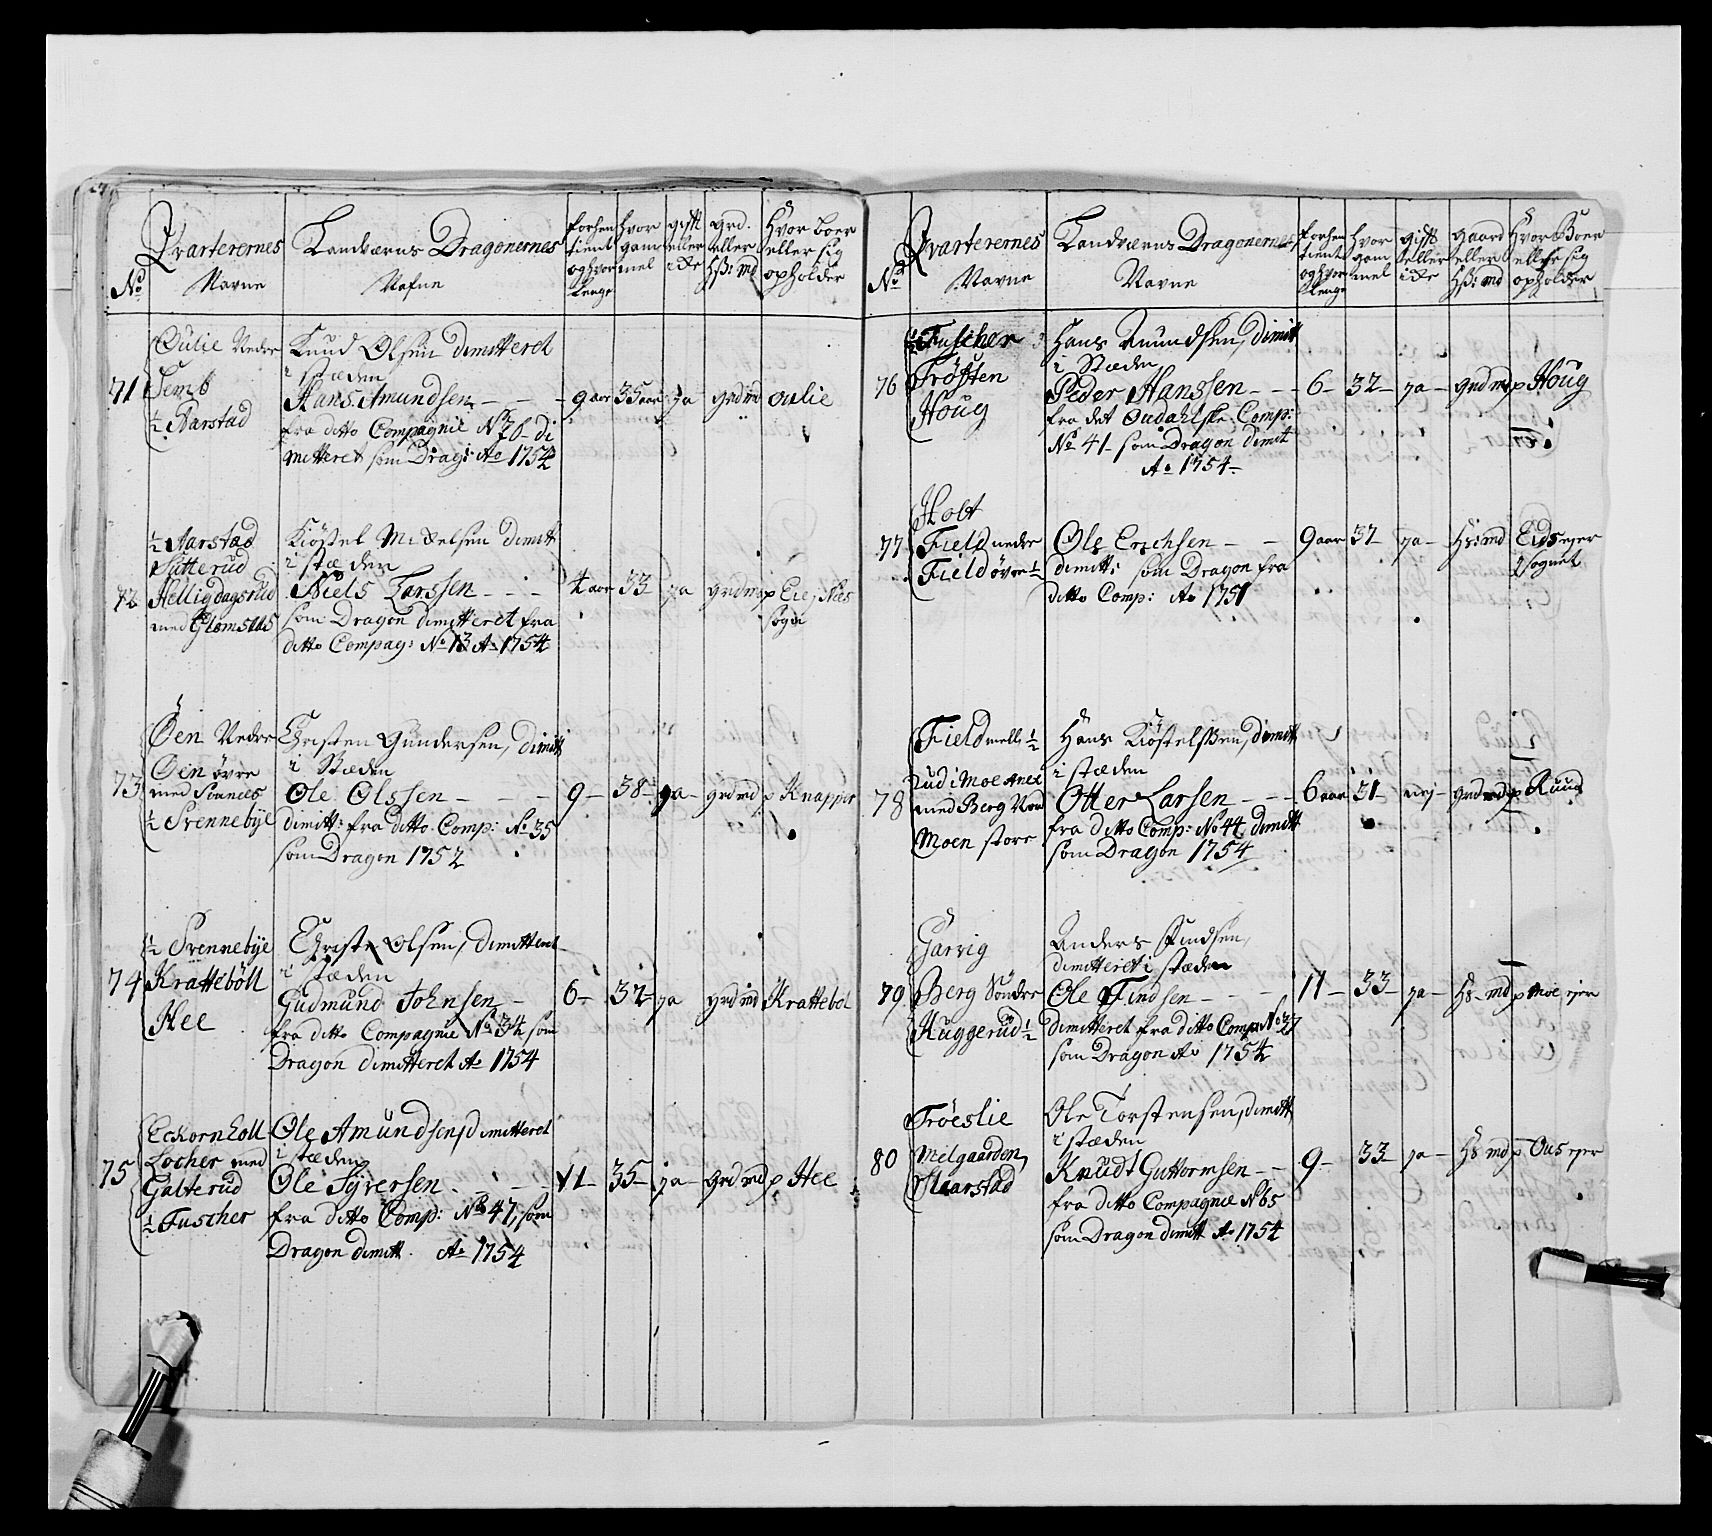 No
Qvarterernes
Navne
Landværns Dragonernes
Nafne
forhen
tient
og hvor
lenge
hvor
gam
mel
gift
eller
icke
grd.
eller
hß: md
Hvor boer
eller sig
opholder
71
Oulie Nedre
Semb
½ Aarstad
Knud Olsen dimitteret
i stæden
Hans Amundsen - - -
fra ditto Compagnie No 76 di
mitteret som Drag: Ao 1754
9 aar
35 aar
ja
grd md
Oulie
72
½ Aarstad
Sætterud
Helligdagsrud
med Glomsaas
Kiøstel Mickelsen dimitt
i stæden
Niels Larssen - - -
som Dragon dimitteret fra
ditto Compag: No 13 Ao 1754
4 aar
33
ja
grd md
p Eie, Næs
sogn
73
Øen Nedre
Øen øvre
med Sønnes
½ Svennebye
Christen Gundersen, dimitt
i Stæden
Ole Olssen - - -
dimitt: fra ditto Comp: No 35
som Dragon 1752
9 -
38 -
ja -
grd md
p Knapper
74
½ Svennebye
Krattebøll
Hee
Christen Olsen, dimitteret
i stæden
Gudmund Johnsen -
fra ditto Compagnie No 34 som
Dragon dimitteret Ao 1754
6 -
32 -
ja
grd md
Krattebøl
75
Eckornholl
Locher med
Galterud
½ Fuscher
Ole Amundsen, dimitteret
i stæden
Ole Syversen - - -
fra ditto Comp: No 47, som
Dragon dimitt. Ao 1754
11 -
35 -
ja -
grd md
p Hee
No
Qvarterernes
Navne
Landværns Dragonernes
Navne
forhen
tient
og hvor
lenge
hvor
gam
mel
gift
eller
icke
gaard
eller
hß: md
Hvor Boer
eller sig
opholder
76
½ Fuscher
Trøften
Houg
Hans Amundsen, dimitt
i Stæden
Peder Hanssen - - -
fra det Oudahlske Comp:
No 41 som Dragon dimit
Ao 1754 -
6 -
32 -
ja -
grd md
p Houg
77
Holt
Field nedre
Field øvre ½
Ole Erichsen - -
dimitt: som Dragon fra
ditto Comp: Ao 1751
9 aar
37
ja -
Hs: md
Eidsejer
i sognet
78
Field mell: ½
Rud i Moe Anex
med Berg Nord
Moen store
Hans Kiøstelsen, dimitt
i stæden
Otter Larsen - - -
fra ditto Comp: No 44 dimitt
som Dragon 1754
6 aar
31 -
nej -
grd md
p Ruud
79
Garvig
Berg Søndre
Huggerud ½
Anders Findsen,
dimitteret i stæden
Ole Findsen - - -
dimitteret fra ditto Comp: No 27
som Dragon Ao 1754
11 -
33 -
ja -
Hs - md
p Moe ejer
80
Trøeslie
Melgaarden,
Skarstad
Ole Torstensen, dimitt,
i stæden
Knudt Guttormsen - -
fra ditto Compagnie No 65
som Dragon dimitt Ao 1754
9 -
33 -
ja -
Hs md
p Ous ejer